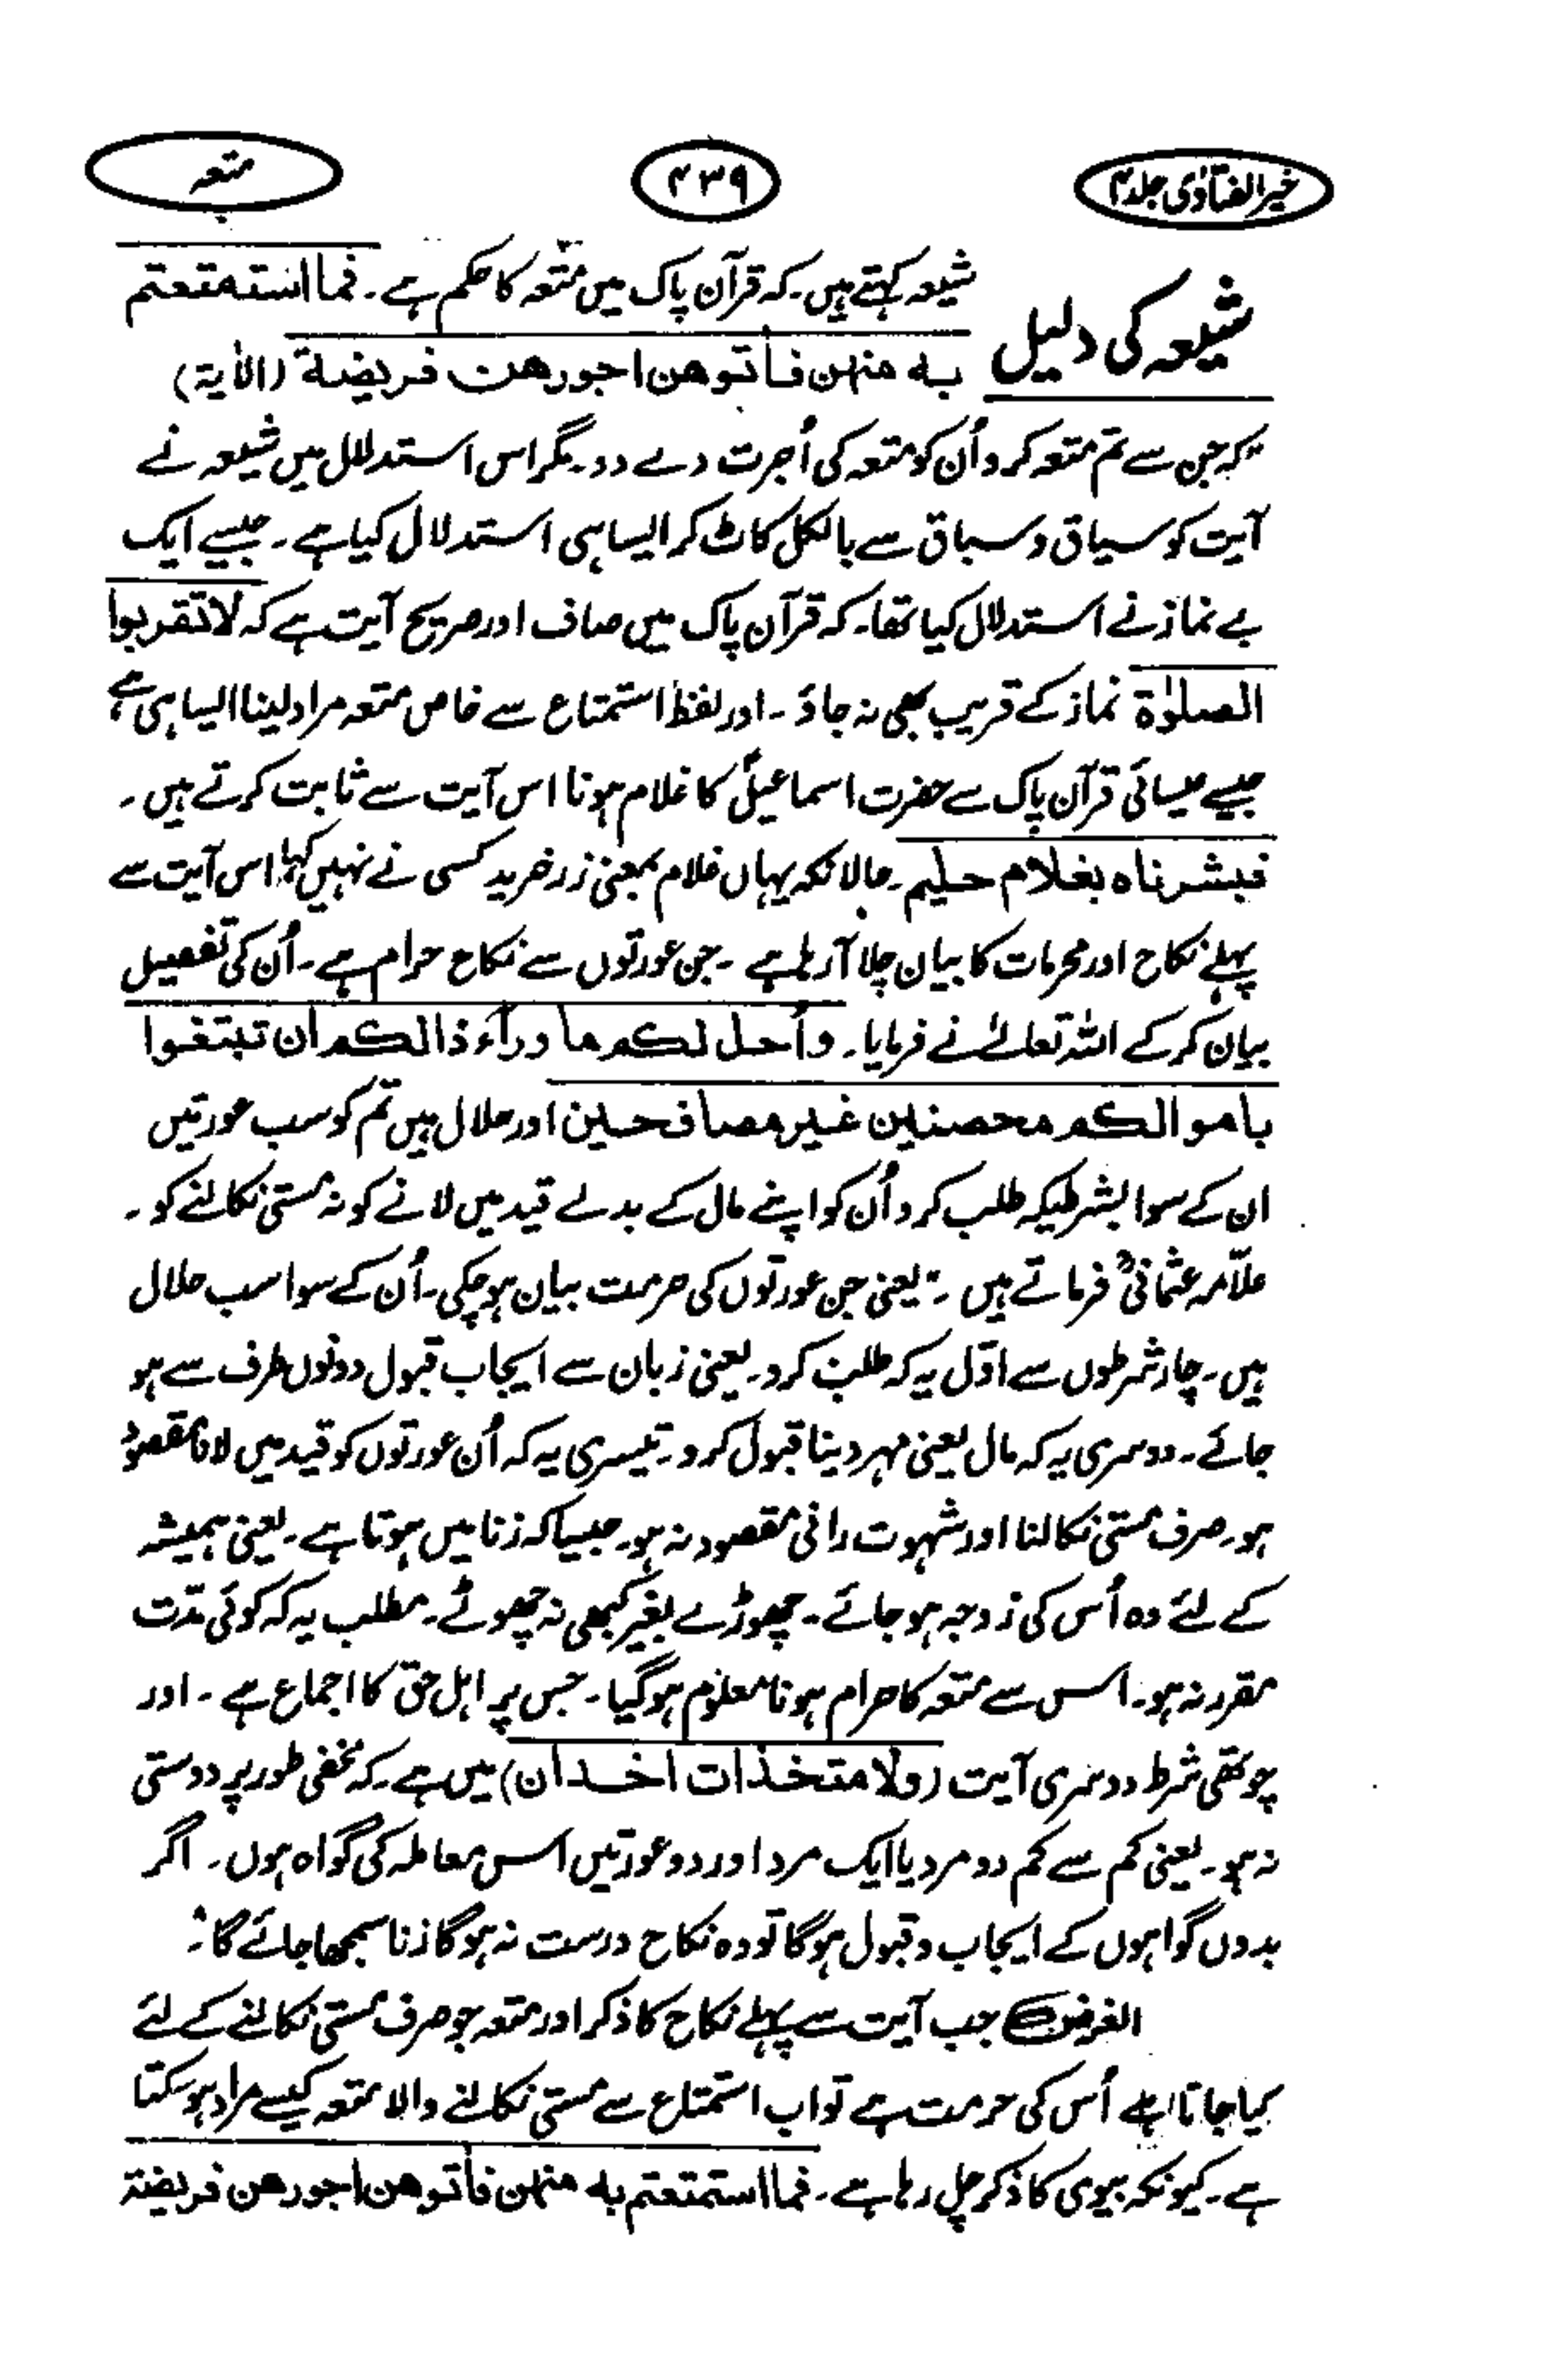 خیر الفتاویٰ جلد ۴
۴۳۹
متعہ
شیعہ کی دلیل
شیعہ کہتے ہیں۔ کہ قرآن پاک میں متعہ کا حکم ہے۔ فما استمتعتم
بہ منہن فأتوھن اجورھن فریضة (الأیة)
کہ جن سے تم متعہ کرو اُن کو متعہ کی اُجرت دے دو۔ مگر اس استدلال میں شیعہ نے
آیت کو سیاق و سباق سے بالکل کاٹ کر ایسا ہی استدلال کیا ہے۔ جیسے ایک
بے نماز نے استدلال کیا تھا۔ کہ قرآن پاک میں صاف اور صریح آیت ہے کہ لا تقربوا
الصلوٰة نماز کے قریب بھی نہ جاؤ۔ اور لفظ استمتاع سے خاص متعہ مراد لینا ایسا ہی ہے
جیسے عیسائی قرآن پاک سے حضرت اسماعیلؑ کا غلام ہونا اس آیت سے ثابت کرتے ہیں۔
فبشرناہ بغلام حلیم۔ حالانکہ یہاں غلام بمعنی زر خرید کسی نے نہیں کہا، اس آیت سے
پہلے نکاح اور محرمات کا بیان چلا آرہا ہے۔ جن عورتوں سے نکاح حرام ہے۔ اُن کی تفصیل
بیان کر کے اللہ تعالےٰ نے فرمایا۔ وأحل لکم ما ورآء ذالکم ان تبتغوا
باموالکم محصنین غیر مصافحین اور حلال ہیں تم کو سب عورتیں
ان کے سوا بشرطیکہ طلب کرو اُن کو اپنے مال کے بدلے قید میں لانے کو نہ مستی نکالنے کو۔
علّامہ عثمانیؒ فرماتے ہیں۔ "یعنی جن عورتوں کی حرمت بیان ہو چکی۔ اُن کے سوا سب حلال
ہیں۔ چار شرطوں سے اوّل یہ کہ طلب کرو۔ یعنی زبان سے ایجاب قبول دونوں طرف سے ہو
جائے۔ دوسری یہ کہ مال یعنی مہر دینا قبول کرو۔ تیسری یہ کہ اُن عورتوں کو قید میں لانا مقصود
ہو۔ صرف مستی نکالنا اور شہوت رانی مقصود نہ ہو۔ جیسا کہ زنا میں ہوتا ہے۔ یعنی ہمیشہ
کے لئے وہ اُس کی زوجہ ہو جائے۔ چھوڑے بغیر کبھی نہ چھوٹے۔ مطلب یہ کہ کوئی مدّت
مقرر نہ ہو۔ اس سے متعہ کا حرام ہونا معلوم ہو گیا۔ جس پر اہل حق کا اجماع ہے۔ اور
چوتھی شرط دوسری آیت (ولا متخذات اخدان) میں ہے۔ کہ مخفی طور پر دوستی
نہ ہو۔ یعنی کم سے کم دو مرد یا ایک مرد اور دو عورتیں اس معاملہ کی گواہ ہوں۔ اگر
بدوں گواہوں کے ایجاب و قبول ہوگا تو وہ نکاح درست نہ ہوگا زنا سمجھا جائے گا"۔
الغرض جب آیت سے پہلے نکاح کا ذکر اور متعہ جو صرف مستی نکالنے کے لئے
کیا جاتا ہے اُس کی حرمت ہے تو اب استمتاع سے مستی نکالنے والا متعہ کیسے مراد ہو سکتا
ہے۔ کیونکہ بیوی کا ذکر چل رہا ہے۔ فما استمتعتم بہ منہن فأتوھن اجورھن فریضة